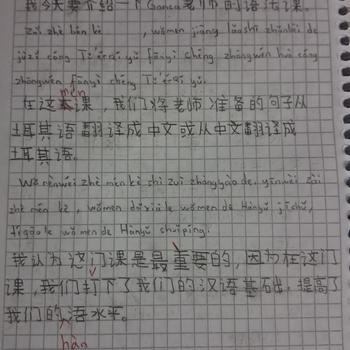 我今天要介绍一下Gonca老师的语法课。
Zài zhè běn kè , wǒmen jiāng lǎoshī zhǔnbèi de
jùzi cóng Tǔ'ěrqí yǔ fānyì chéng zhōngwén huò cóng
zhōngwén fānyì chéng Tǔ'ěrqí yǔ.
mén
在这本课，我们将老师准备的句子从
土耳其语翻译成中文或从中文翻译成
土耳其语。
Wǒ rènwéi zhè mén kè shì zuì zhòngyào de, yīnwèi zài
zhè mén kè, wǒmen dǎxiàle wǒmen de Hànyǔ jīchǔ,
tígāole wǒmen de Hànyǔ shuǐpíng.
我认为这门课是最重要的，因为在这门
课，我们打下了我们的汉语基础，提高了
我们的海水平。
hàn